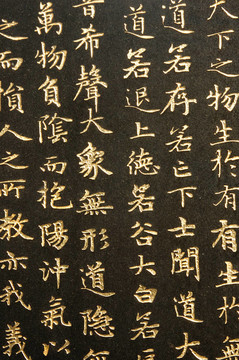 天下之物生於有有生於
道若存若亡下士聞道大
道若退上德若谷大白若
音希聲大象無形道隱
萬物負陰而抱陽沖氣以
之而損人之所教亦我義